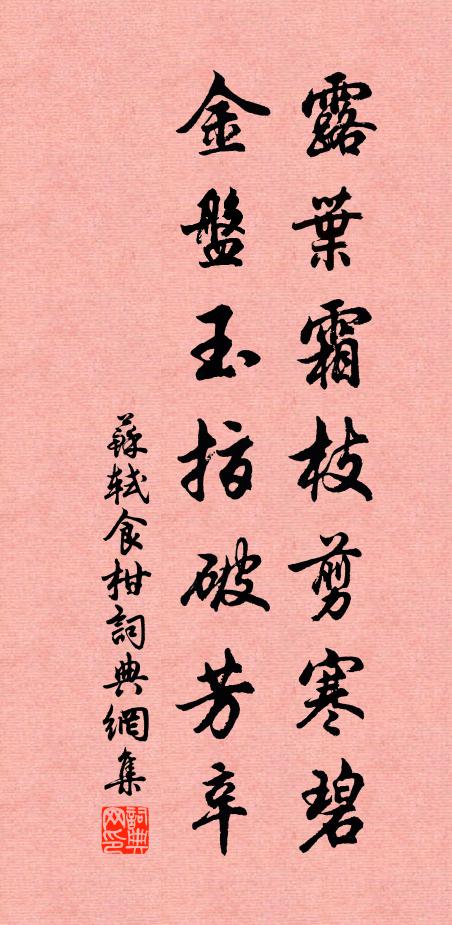 露葉霜枝剪寒碧
金盤玉指破芳辛
蘇軾食柑詞典網集
詞典網印